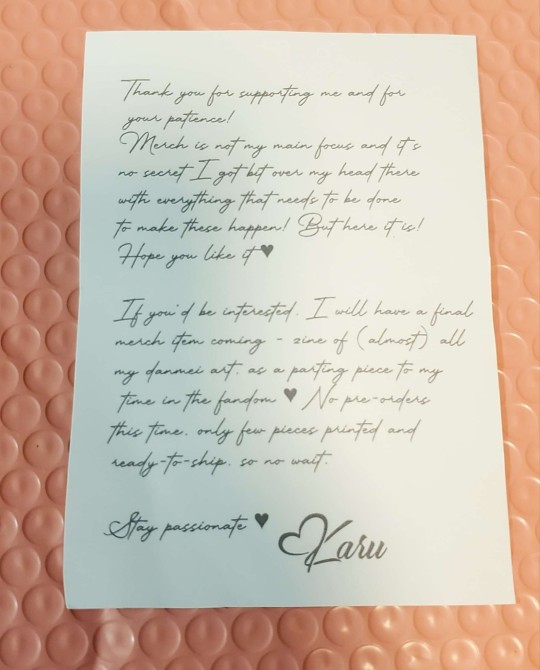 Thank you for supporting me and for
your patience!
Merch is not my main focus and it's
no secret I got bit over my head there
with everything that needs to be done
to make these happen! But here it is!
Hope you like it ♥
If you'd be interested, I will have a final
merch item coming - zine of (almost) all
my danmei art, as a parting piece to my
time in the fandom ♥ No pre-orders
this time, only few pieces printed and
ready-to-ship, so no wait.
Stay passionate ♥ Karu